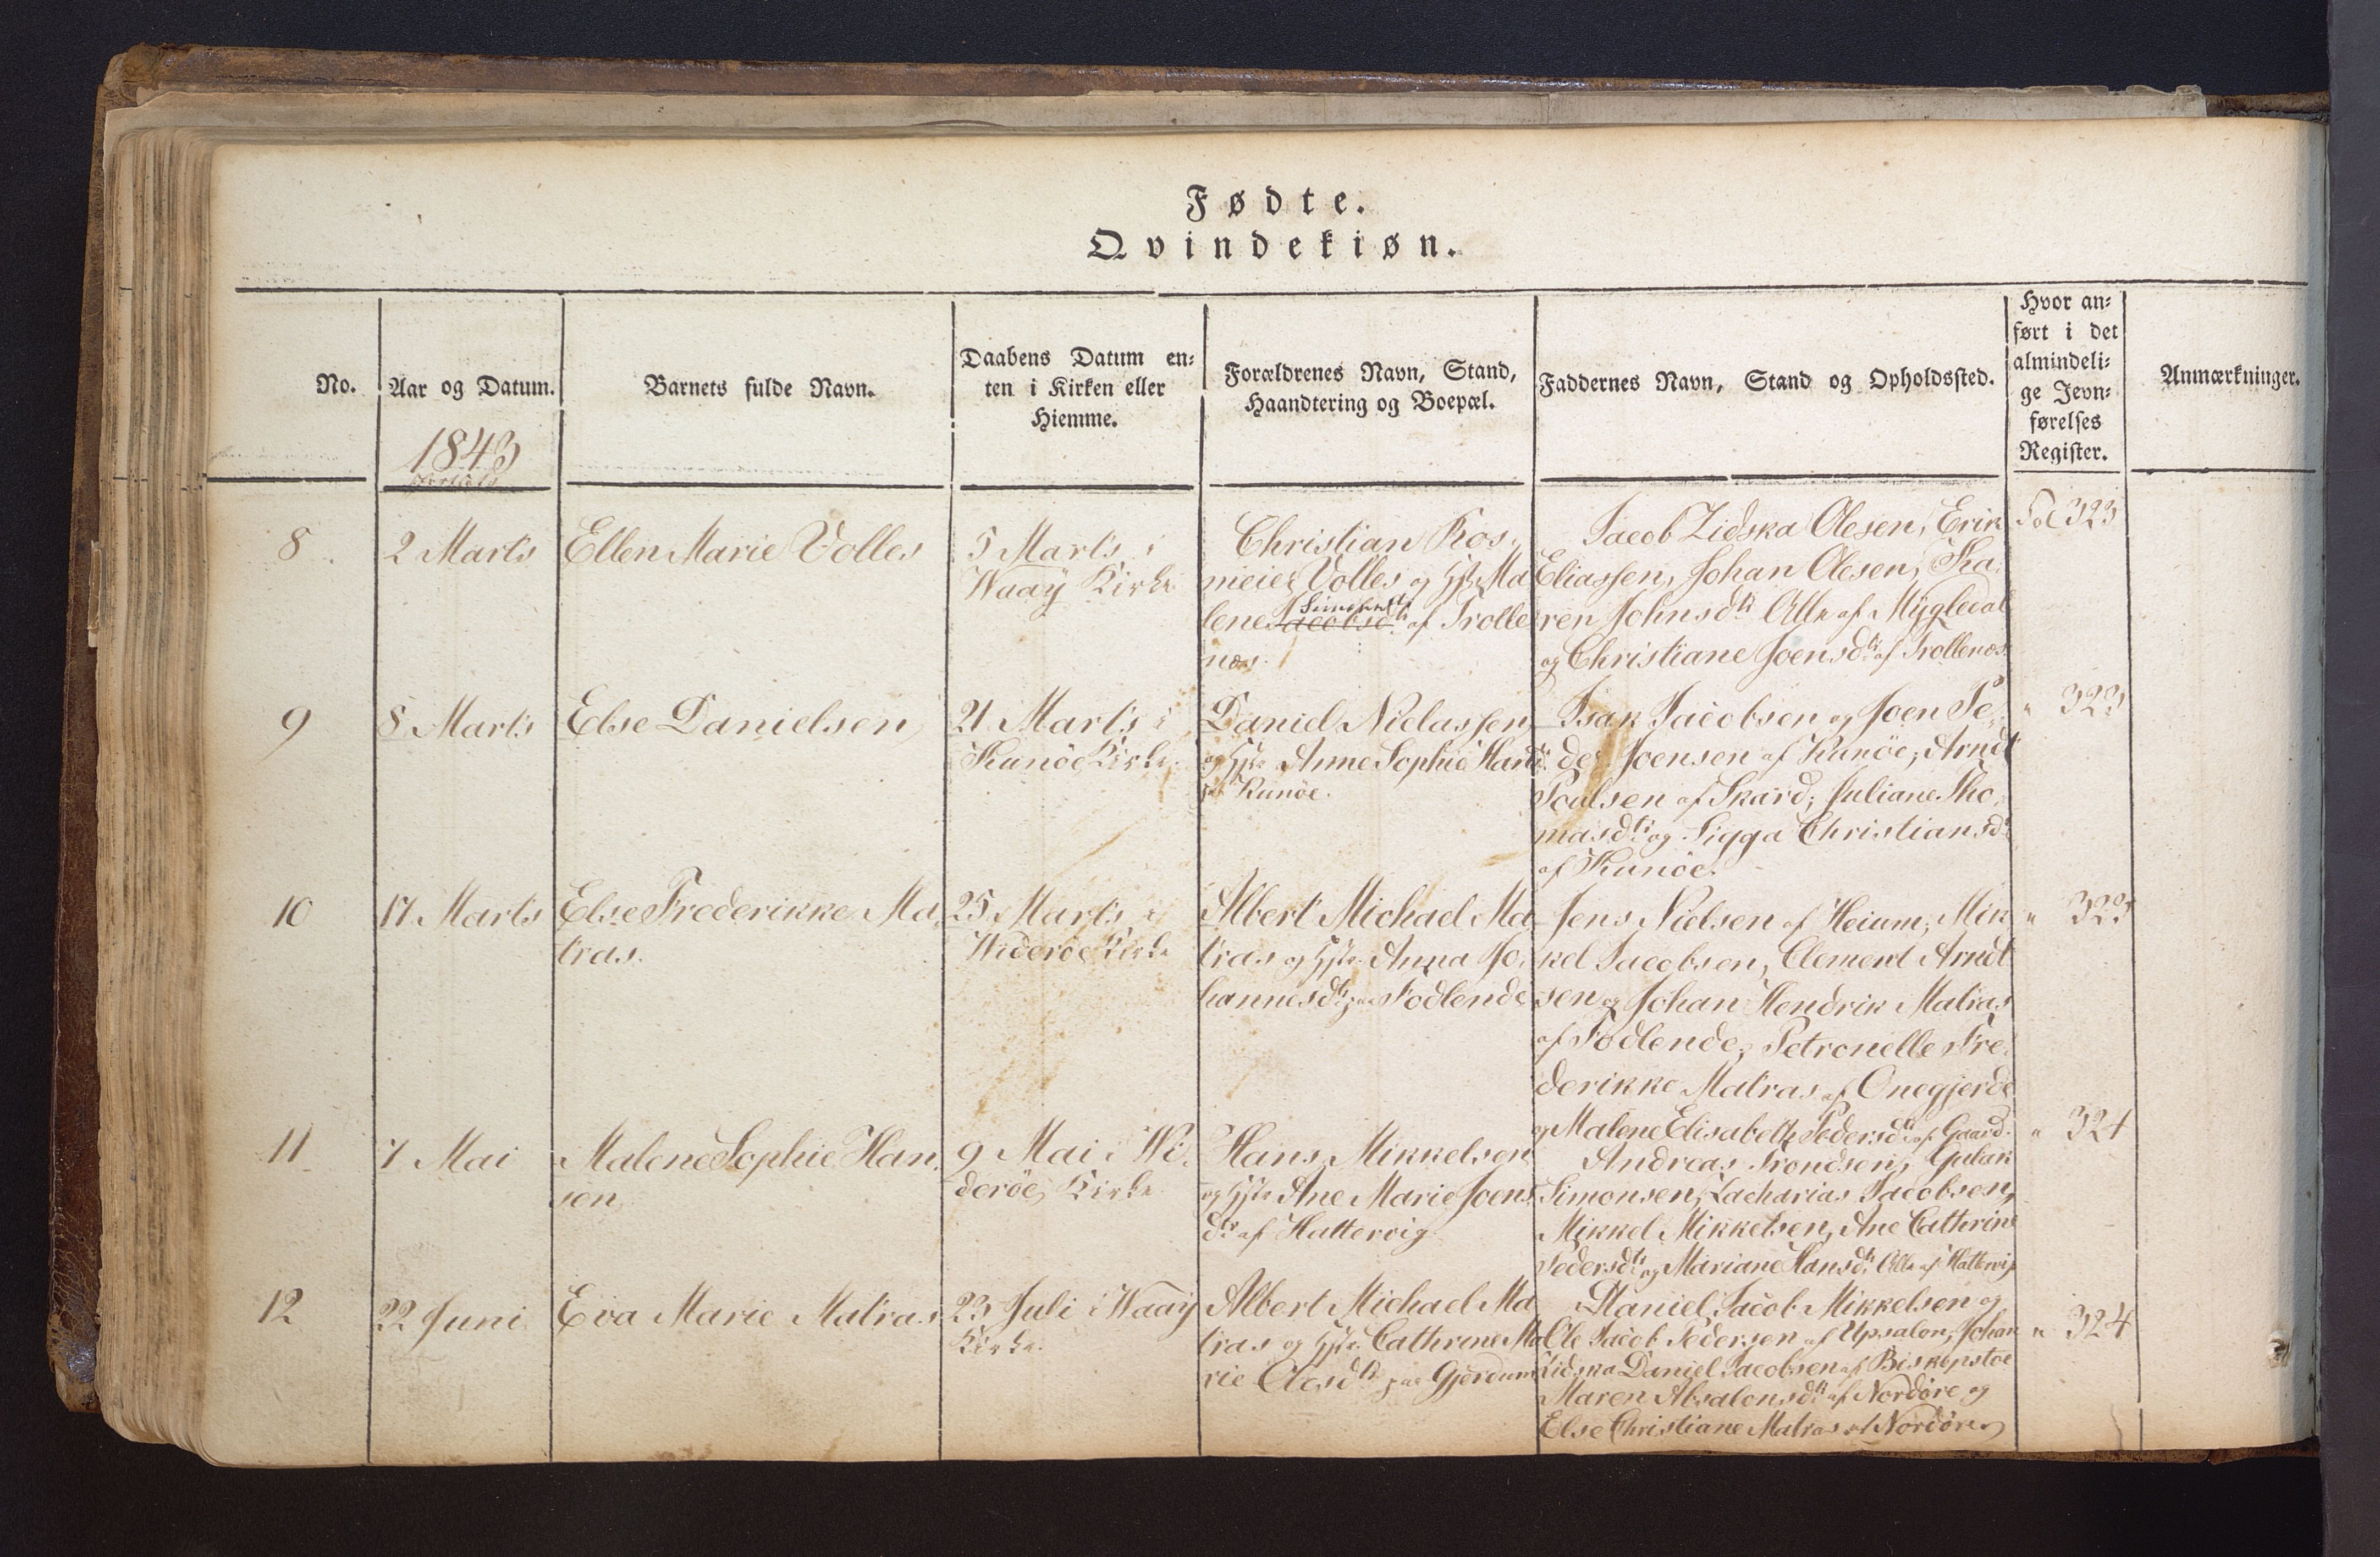 Fødte.
Qvindekiøn.
No.
Aar og Datum.
1843
Barnets fulde Navn.
Daabens Datum en-
ten i Kirken eller
Hiemme.
Forældrenes Navn, Stand,
Haandtering og Boepæl.
Faddernes Navn, Stand og Opholdssted.
Hvor an-
ført i det
almindeli-
ge Jevn-
førelses
Register.
Anmærkninger.
8
2 Marts
Ellen Marie Volles
5 Marts i
Waaÿ Kirke
Christian Ros-
meier Volles og Hstr Ma
lene Jacobsdtr Simonsdtr af Trolle
næs.
Jacob Zidska Olesen, Erik
Eliassen, Johan Olesen, Ka-
ren Johnsdtr Alle af Mÿgledal
og Christiane Joensdtr af Trollenæs
Fol 323
9
8 Marts
Else Danielsen
21 Marts i
Kunöe Kirke.
Daniel Niclassen
og Hstr Anne Sophie Hansd.
paa Kunöe.
Isak Jacobsen og Joen Pe-
der Joensen af Kunöe, Arndt
Poulsen af Skard; Juliane Tho-
masdtr og Sigga Christiansd
af Kunöe.
" 323
10
17 Marts
Else Frederikke Ma-
tras.
25 Marts i
Wideröe Kirke
Albert Michael Ma-
tras og Hstr Anna Jo-
hannesdtr paa Fodlende
Jens Nielsen af Heium, Mik-
kel Jacobsen, Clement Arndt
sen og Johan Hendrik Matras
af Fodlende, Petronelle Fre-
derikke Matras af Onegjerde
og Malene Elisabeth Pedersdtr af Gaard.
" 323
11
7 Mai
Malene Sophie Han-
sen
9 Mai i Wi-
deröe Kirke
Hans Mikkelsen
og Hstr Ane Marie Joens
dtr af Hattervig
Andreas Trondsen, Gulak
Simonsen, Zacharias Jacobsen,
Mikkel Mikkelsen, Ane Cathrine
Pedersdtr og Mariane Hansdtr Alle af Hattervig
" 324
12
22 Juni
Eva Marie Matras
23 Juli i Waaÿ
Kirke.
Albert Michael Ma
tras og Hstr Cathrine Ma
rie Olesdtr paa Gjerdum
Daniel Jacob Mikkelsen og
Ole Jacob Pedersen af Upsalen, Johan
Zidska Daniel Jacobsen af Biskopstöe
Maren Absalonsdtr af Nordöre og
Else Christiane Matras af Nordöre
" 324